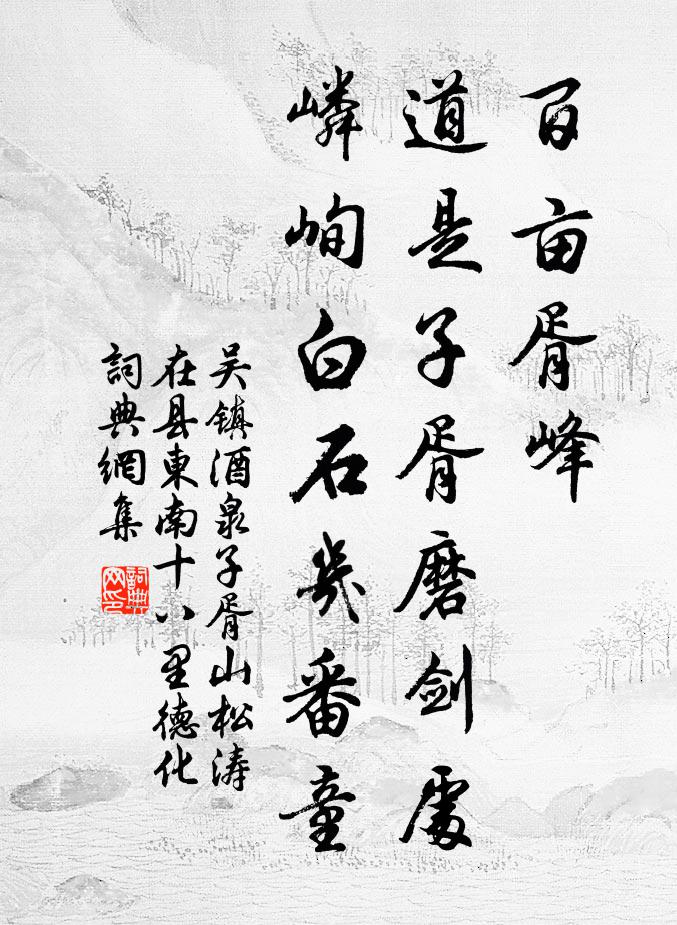 百亩胥峰
道是子胥磨剑處
嶙峋白石几番童
吴镇酒泉子胥山松涛
在县東南十八里德化
詞典網集
詞典網印